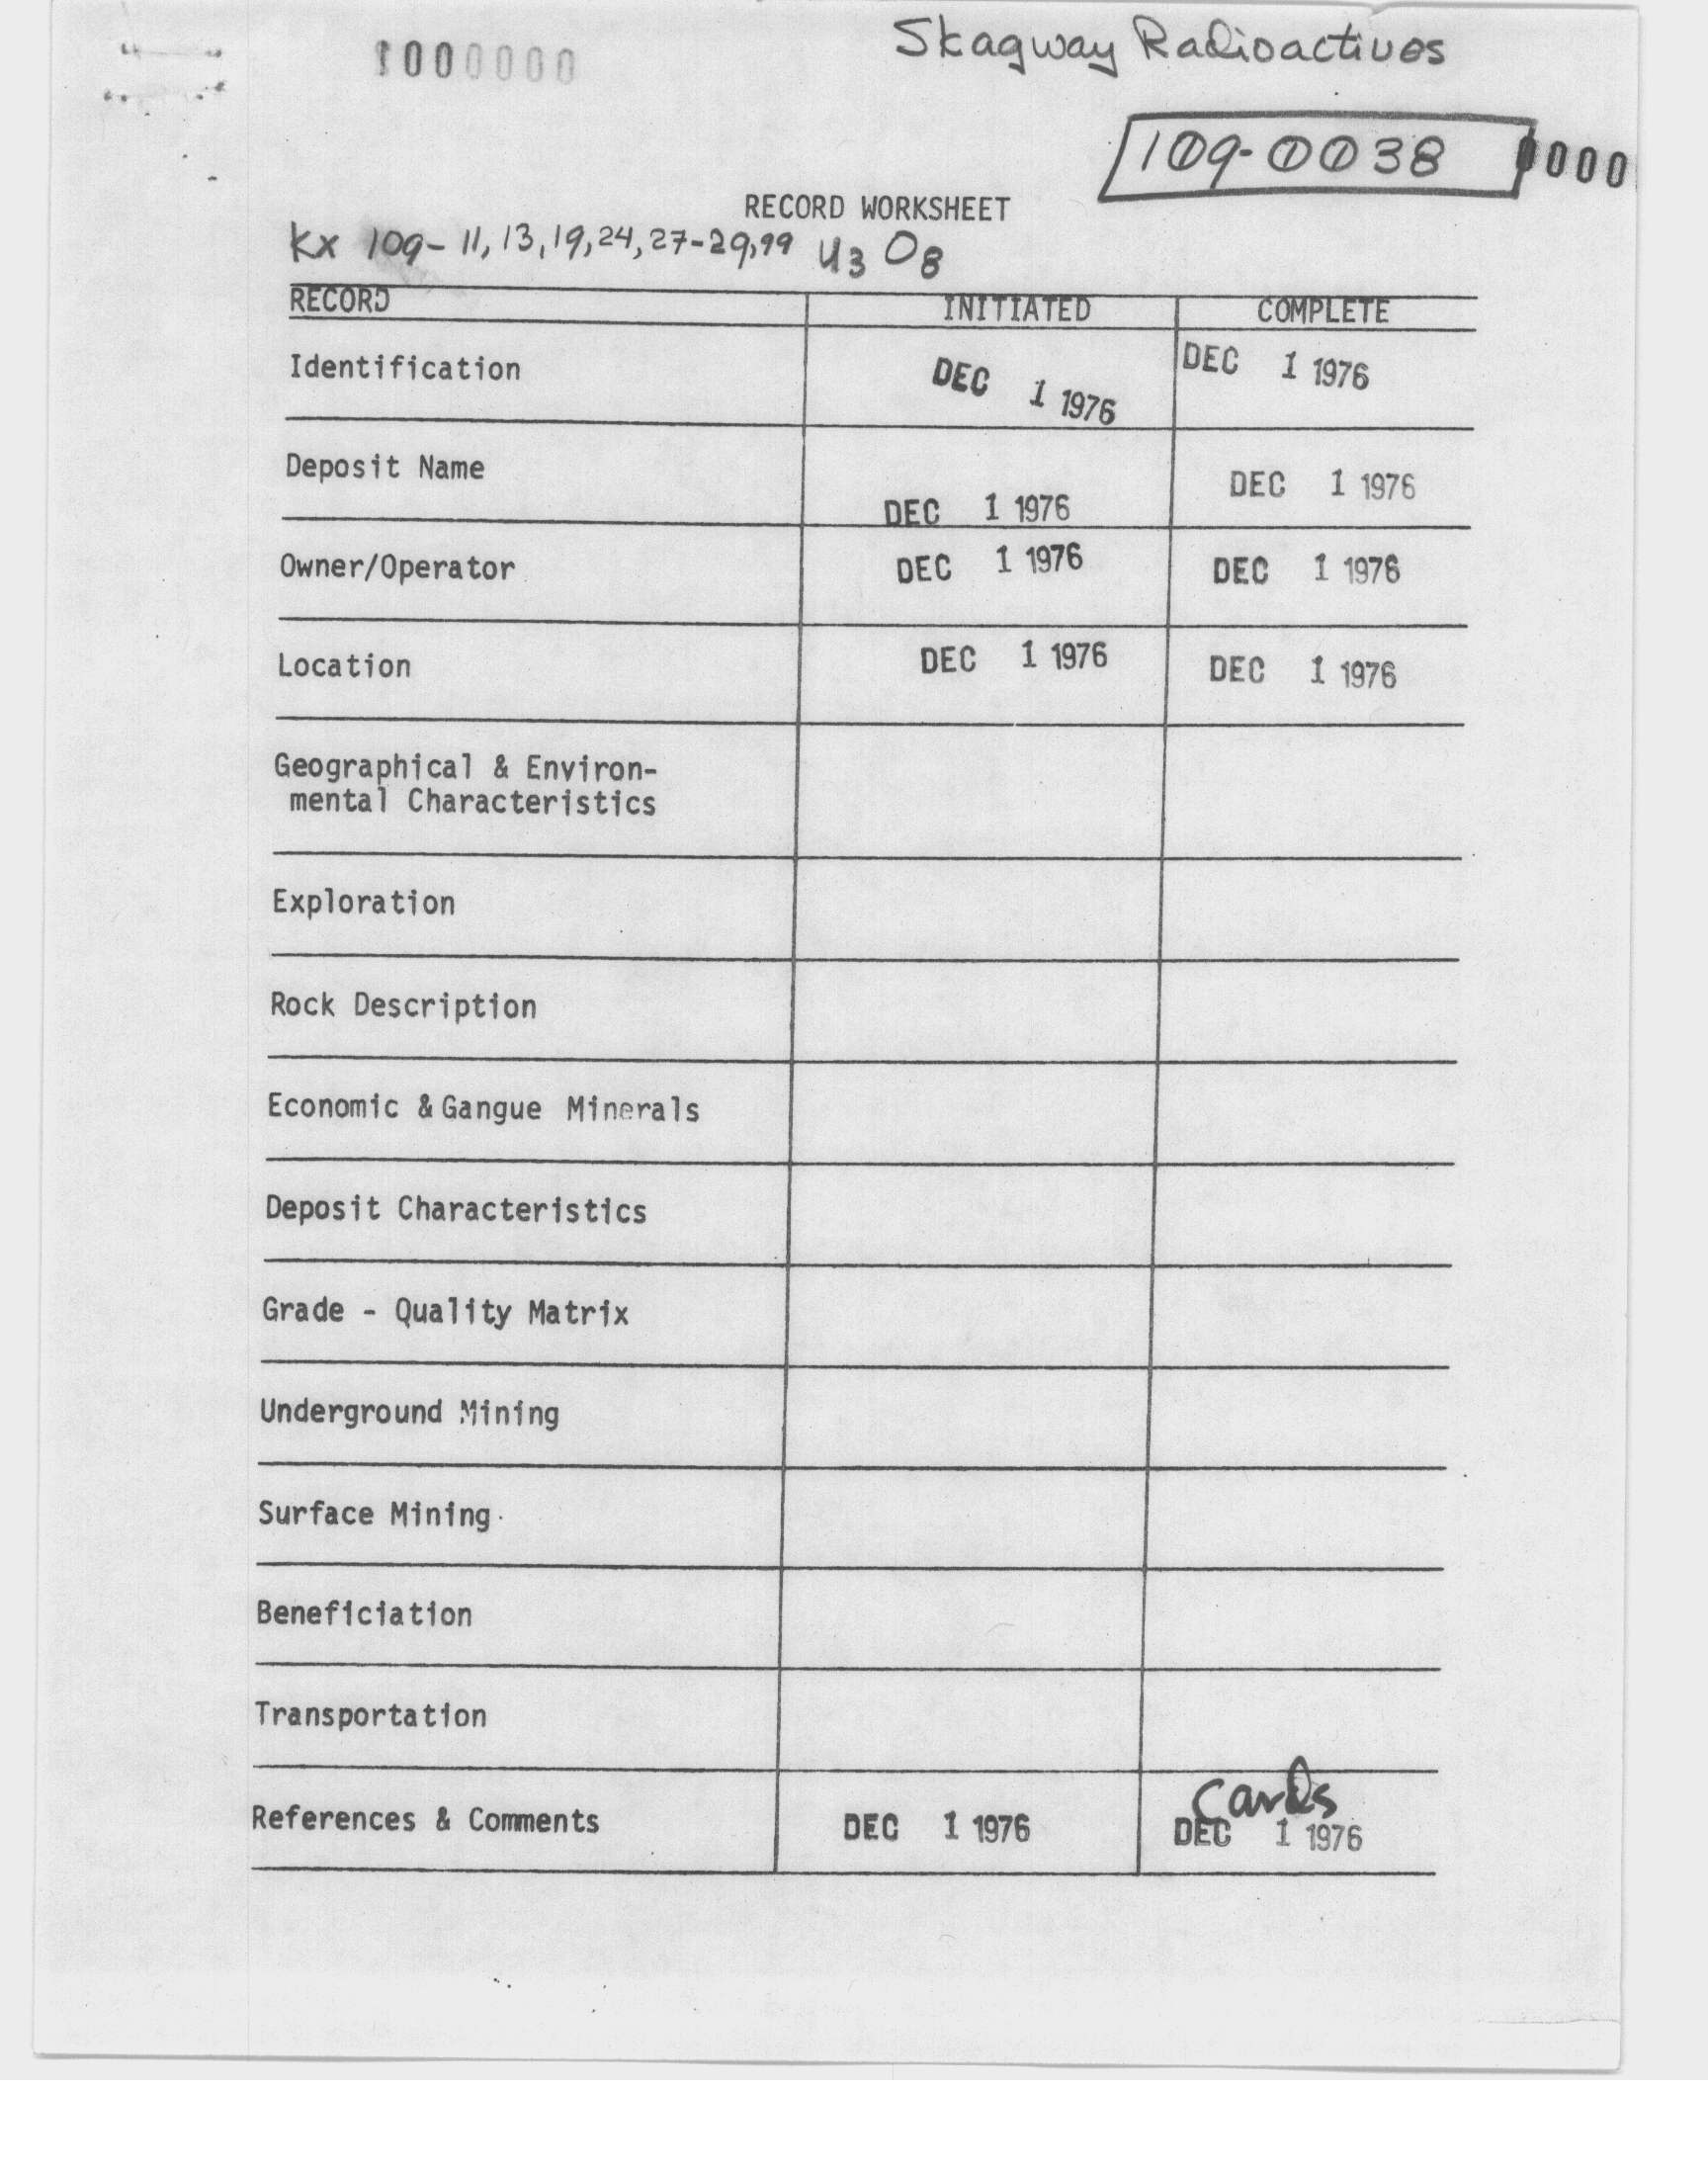 Skagway Radioactives
1000000
109-0038 0000
RECORD WORKSHEET
Kx 109-11,13,19,24,27-29,99 U3O8
RECORD INITIATED COMPLETE
Identification DEC 1 1976 DEC 1 1976
Deposit Name DEC 1 1976 DEC 1 1976
Owner/Operator DEC 1 1976 DEC 1 1976
Location DEC 1 1976 DEC 1 1976
Geographical & Environ-
mental Characteristics
Exploration
Rock Description
Economic & Gangue Minerals
Deposit Characteristics
Grade - Quality Matrix
Underground Mining
Surface Mining
Beneficiation
Transportation
Cards
References & Comments DEC 1 1976 DEC 1 1976